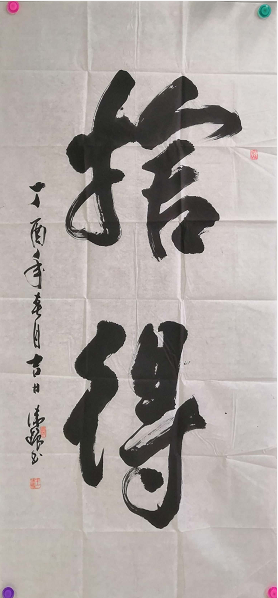 捨得
丁酉年春月吉日